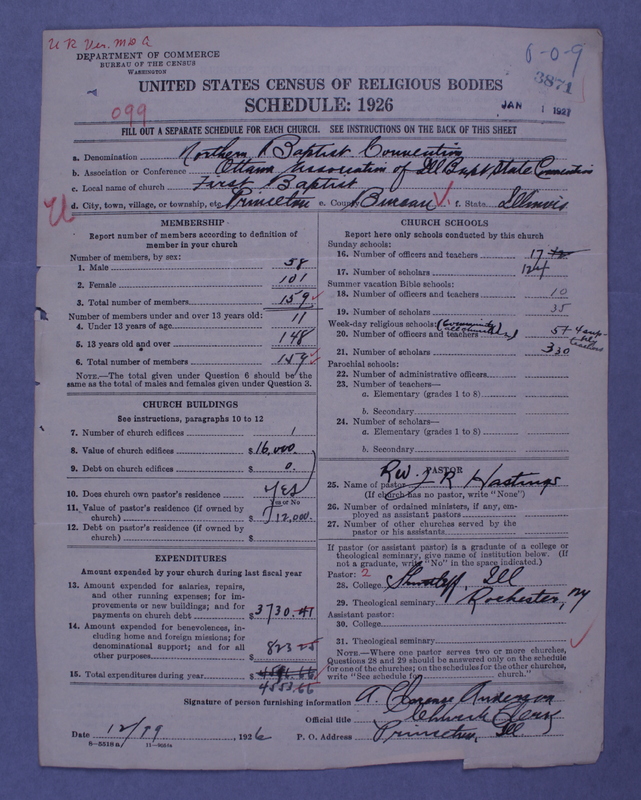 U R Ver. M D G
DEPARTMENT OF COMMERCE
BUREAU OF THE CENSUS
WASHINGTON
6-0-9
3871
UNITED STATES CENSUS OF RELIGIOUS BODIES
SCHEDULE: 1926
099
JAN 1 1927
FILL OUT A SEPARATE SCHEDULE FOR EACH CHURCH. SEE INSTRUCTIONS ON THE BACK OF THIS SHEET
a. Denomination Northern Baptist Convention
b. Association or Conference Ottawa Association of Ill Bapt State Convention
c. Local name of church First Baptist
d. City, town, village, or township, etc. Princeton e. County Bureau f. State Illinois
MEMBERSHIP
Report number of members according to definition of member in your church
Number of members, by sex:
1. Male 58
2. Female 101
3. Total number of members 159
Number of members under and over 13 years old:
4. Under 13 years of age 11
5. 13 years old and over 148
6. Total number of members 159
NOTE.—The total given under Question 6 should be the same as the total of males and females given under Question 3.
CHURCH BUILDINGS
See instructions, paragraphs 10 to 12
7. Number of church edifices 1
8. Value of church edifices $16,000.
9. Debt on church edifices $ 0.
10. Does church own pastor's residence Yes
Yes or No
11. Value of pastor's residence (if owned by church) $ 12,000.
12. Debt on pastor's residence (if owned by church) $
EXPENDITURES
Amount expended by your church during last fiscal year
13. Amount expended for salaries, repairs, and other running expenses; for improvements or new buildings; and for payments on church debt $3730.41
14. Amount expended for benevolences, including home and foreign missions; for denominational support; and for all other purposes $ 823 25
15. Total expenditures during year $
4553.66
CHURCH SCHOOLS
Report here only schools conducted by this church
Sunday schools:
16. Number of officers and teachers 17 12
17. Number of scholars 124
Summer vacation Bible schools:
18. Number of officers and teachers 10
19. Number of scholars 35
Week-day religious schools: (Community all churches)
20. Number of officers and teachers 5 + 4 supply teachers
21. Number of scholars 330
Parochial schools:
22. Number of administrative officers
23. Number of teachers—
a. Elementary (grades 1 to 8)
b. Secondary
24. Number of scholars—
a. Elementary (grades 1 to 8)
b. Secondary
PASTOR
25. Name of pastor Rev. J R Hastings
(If church has no pastor, write "None")
26. Number of ordained ministers, if any, employed as assistant pastors
27. Number of other churches served by the pastor or his assistants
If pastor (or assistant pastor) is a graduate of a college or theological seminary, give name of institution below. (If not a graduate, write "No" in the space indicated.)
Pastor: 2
28. College Shurtleff Ill
29. Theological seminary Rochester, NY
Assistant pastor:
30. College
31. Theological seminary
NOTE.—Where one pastor serves two or more churches, Questions 28 and 29 should be answered only on the schedule for one of the churches; on the schedules for the other churches, write "See schedule for church."
Signature of person furnishing information A. Clarence Anderson
Official title Church Clerk
Date 12/29, 1926 P. O. Address Princeton, Ill
8-5518a 11-9261a